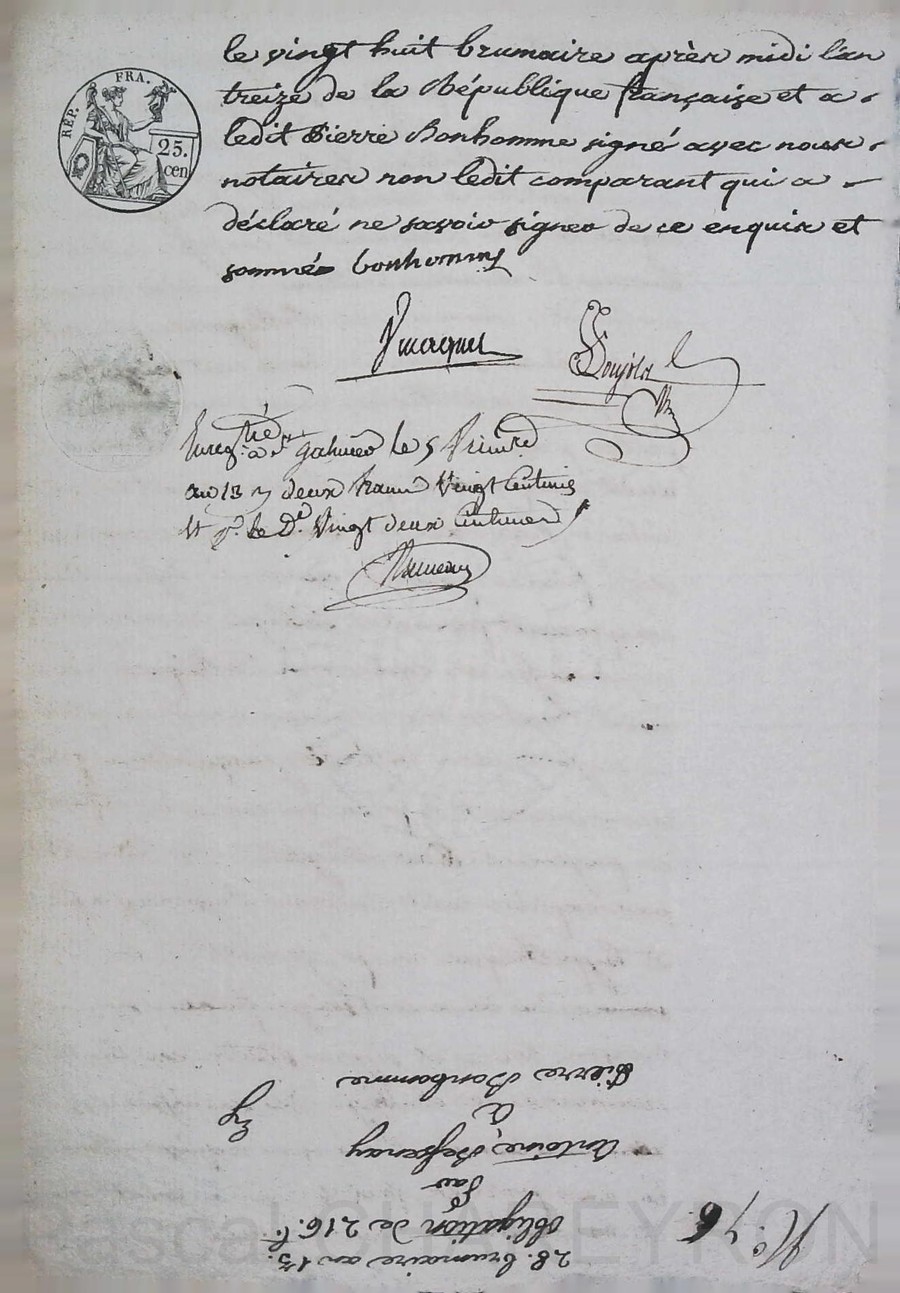 RÉP. FRA.
25.
cen
le vingt huit brumaire après midi l'an
treize de la République française et a
ledit Pierre Bonhomme signé avec nous
notaires non ledit comparant qui a
déclaré ne savoir signer de ce enquis et
sommé bonhomme
Enreg.tré à St galmier le 5 frim.re
an 13 deux francs vingt centimes
et p.r le D.e vingt deux centimes
28. brumaire an 13.
obligation de 216. f.
Par
antoine
à
Pierre Bonhomme
N.o 76
Pascal CHAMBEYRON